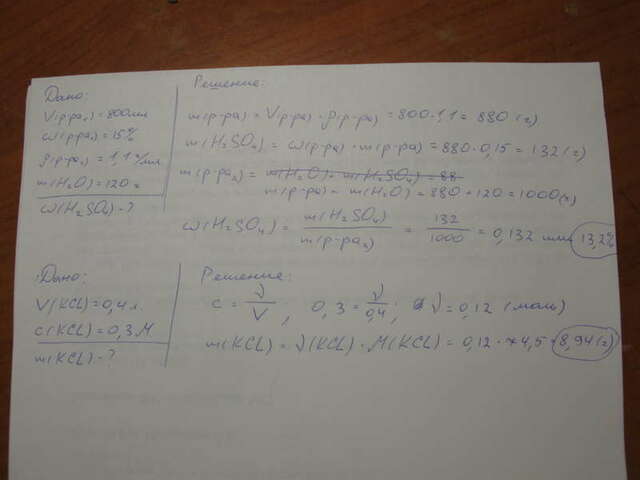 Дано:
V(р-ра₁) = 800 мл
ω(р-ра₁) = 15%
ρ(р-ра₁) = 1,1 г/мл
m(H₂O) = 120 г
ω(H₂SO₄) - ?
Решение:
m(р-ра) = V(р-ра) · ρ(р-ра) = 800 · 1,1 = 880 (г)
m(H₂SO₄) = ω(р-ра) · m(р-ра) = 880 · 0,15 = 132 (г)
m(р-ра₂) = m(H₂O) + m(H₂SO₄) = 88
m(р-ра) + m(H₂O) = 880 + 120 = 1000 (г)
ω(H₂SO₄) = m(H₂SO₄) / m(р-ра₂) = 132 / 1000 = 0,132 или 13,2%
Дано:
V(KCl) = 0,4 л
c(KCl) = 0,3 М
m(KCl) - ?
Решение:
c = ν / V, 0,3 = ν / 0,4; ν = 0,12 (моль)
m(KCl) = ν(KCl) · M(KCl) = 0,12 · 74,5 = 8,94 (г)